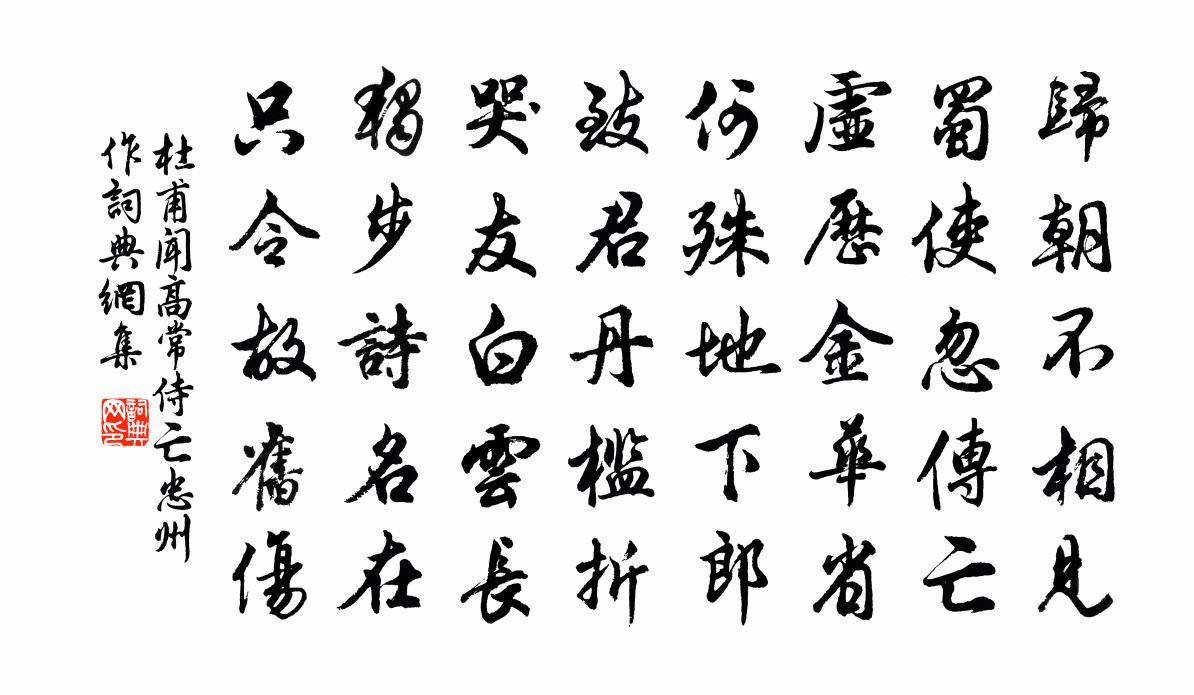 歸朝不相見
蜀使忽傳亡
虛歷金華省
何殊地下郎
致君丹檻折
哭友白雲長
獨步詩名在
只令故舊傷
杜甫聞高常侍亡忠州
作詞典網集
詞典
网印